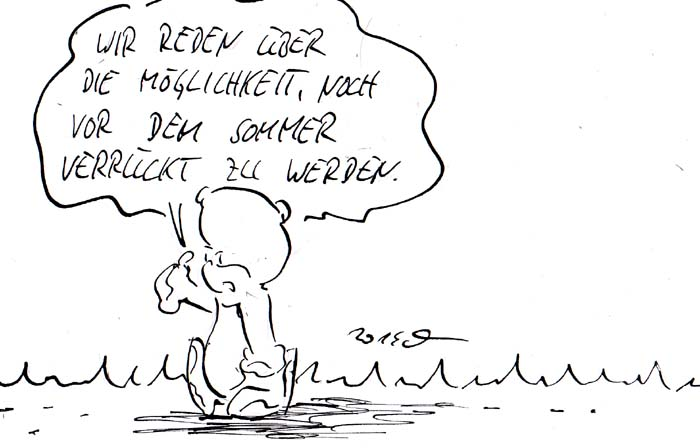 WIR REDEN ÜBER
DIE MÖGLICHKEIT, NOCH
VOR DEM SOMMER
VERRÜCKT ZU WERDEN.